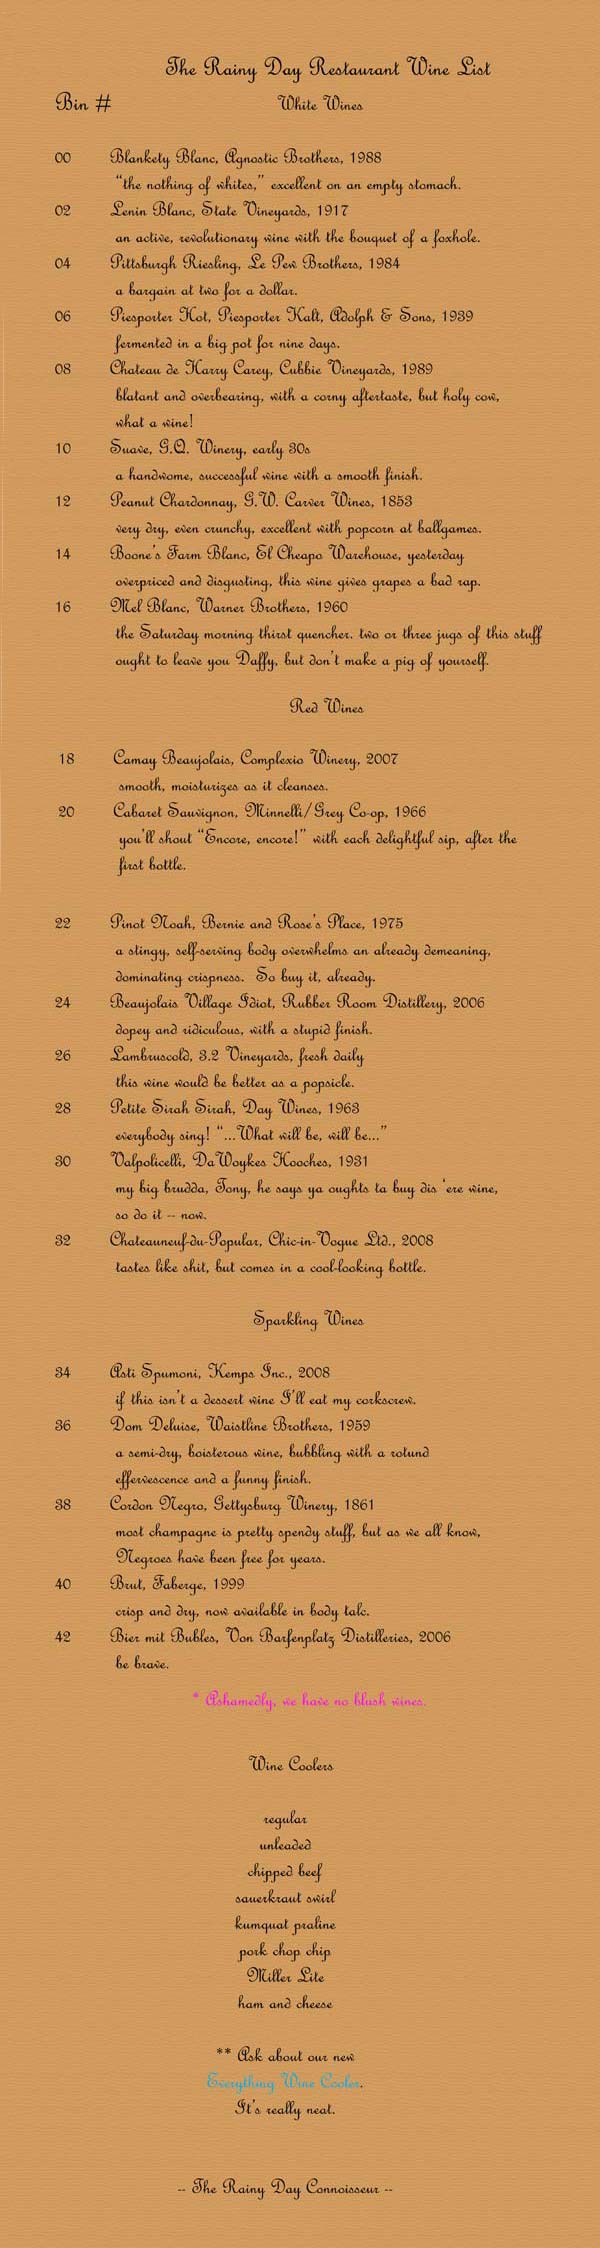 The Rainy Day Restaurant Wine List
Bin #
White Wines
00 Blankety Blanc, Agnostic Brothers, 1988
"the nothing of whites," excellent on an empty stomach.
02 Lenin Blanc, State Vineyards, 1917
an active, revolutionary wine with the bouquet of a foxhole.
04 Pittsburgh Riesling, Le Pew Brothers, 1984
a bargain at two for a dollar.
06 Piesporter Hot, Piesporter Kalt, Adolph & Sons, 1939
fermented in a big pot for nine days.
08 Chateau de Harry Carey, Cubbie Vineyards, 1989
blatant and overbearing, with a corny aftertaste, but holy cow,
what a wine!
10 Suave, G.Q. Winery, early 30s
a handwome, successful wine with a smooth finish.
12 Peanut Chardonnay, G.W. Carver Wines, 1853
very dry, even crunchy, excellent with popcorn at ballgames.
14 Boone's Farm Blanc, El Cheapo Warehouse, yesterday
overpriced and disgusting, this wine gives grapes a bad rap.
16 Mel Blanc, Warner Brothers, 1960
the Saturday morning thirst quencher. two or three jugs of this stuff
ought to leave you Daffy, but don't make a pig of yourself.
Red Wines
18 Camay Beaujolais, Complexio Winery, 2007
smooth, moisturizes as it cleanses.
20 Cabaret Sauvignon, Minnelli/Grey Co-op, 1966
you'll shout "Encore, encore!" with each delightful sip, after the
first bottle.
22 Pinot Noah, Bernie and Rose's Place, 1975
a stingy, self-serving body overwhelms an already demeaning,
dominating crispness. So buy it, already.
24 Beaujolais Village Idiot, Rubber Room Distillery, 2006
dopey and ridiculous, with a stupid finish.
26 Lambruscold, 3.2 Vineyards, fresh daily
this wine would be better as a popsicle.
28 Petite Sirah Sirah, Day Wines, 1963
everybody sing! "...What will be, will be..."
30 Valpolicelli, DaWoykes Hooches, 1931
my big brudda, Tony, he says ya oughts ta buy dis 'ere wine,
so do it -- now.
32 Chateauneuf-du-Popular, Chic-in-Vogue Ltd., 2008
tastes like shit, but comes in a cool-looking bottle.
Sparkling Wines
34 Asti Spumoni, Kemps Inc., 2008
if this isn't a dessert wine I'll eat my corkscrew.
36 Dom Deluise, Waistline Brothers, 1959
a semi-dry, boisterous wine, bubbling with a rotund
effervescence and a funny finish.
38 Cordon Negro, Gettysburg Winery, 1861
most champagne is pretty spendy stuff, but as we all know,
Negroes have been free for years.
40 Brut, Faberge, 1999
crisp and dry, now available in body talc.
42 Bier mit Bubles, Von Barfenplatz Distilleries, 2006
be brave.
* Ashamedly, we have no blush wines.
Wine Coolers
regular
unleaded
chipped beef
sauerkraut swirl
kumquat praline
pork chop chip
Miller Lite
ham and cheese
** Ask about our new
Everything Wine Cooler.
It's really neat.
-- The Rainy Day Connoisseur --